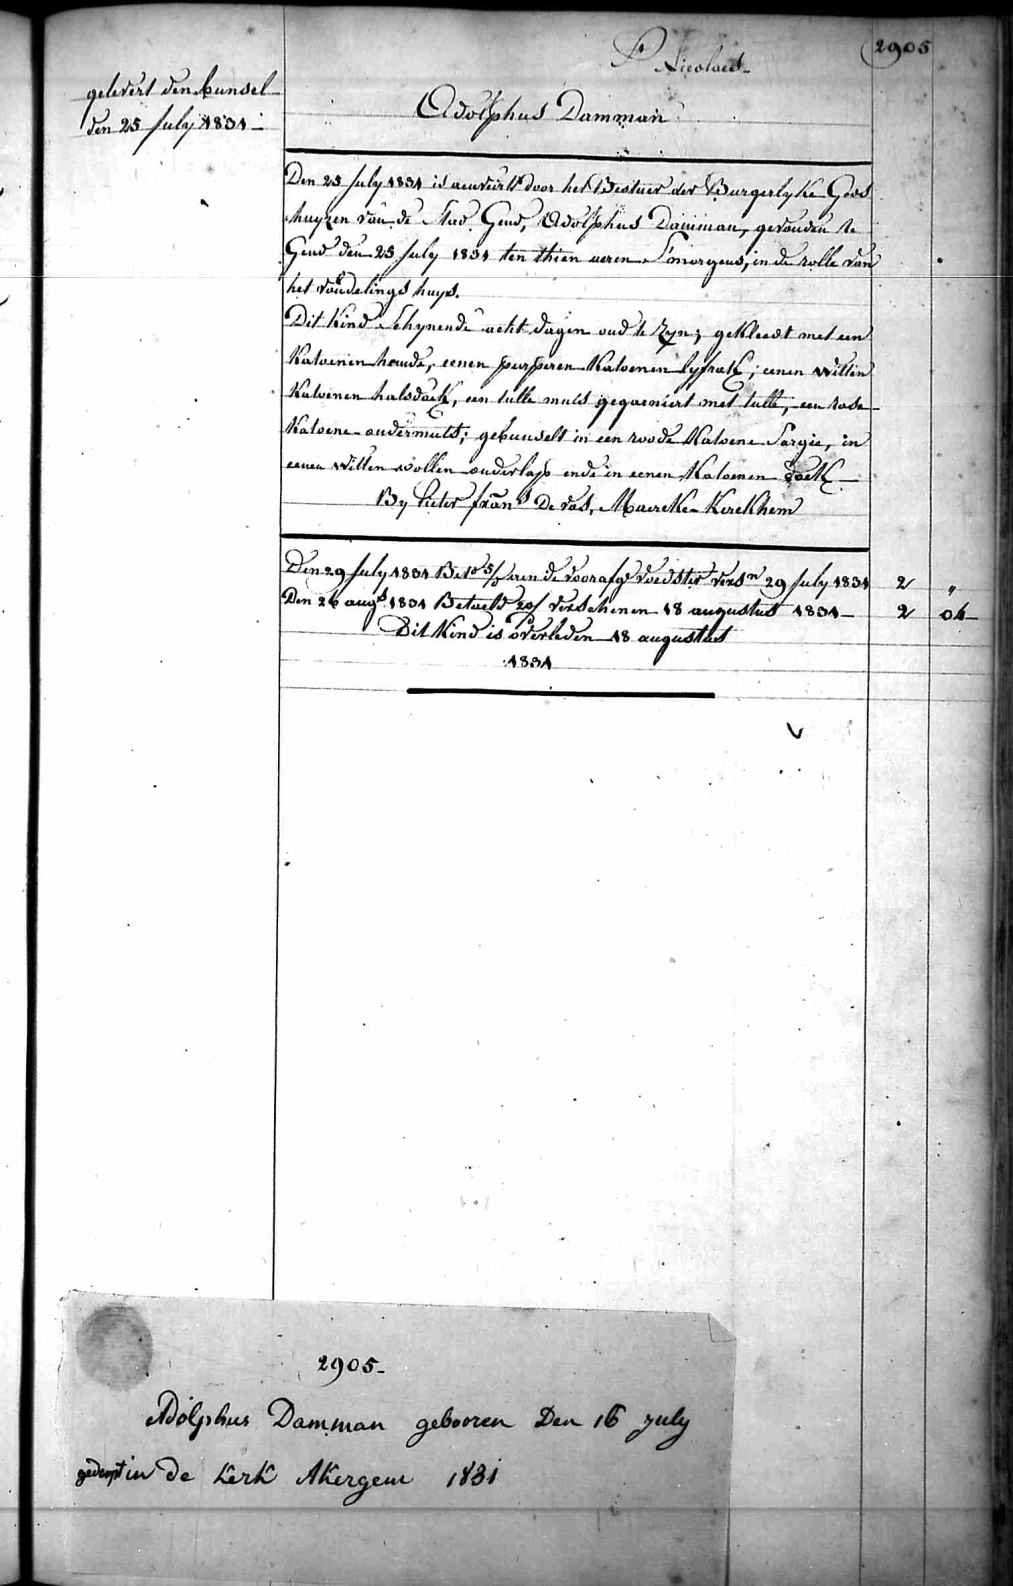 2905
St Nicolaes
gelevert den bunsel
den 25 July 1831
Adolphus Damman
Den 25 July 1831 is aenveirt door het Bestier der Burgerlyke Gods
huyzen van de Stad Gend, Adolphus Damman, gevonden te
Gend den 25 July 1831 ten thien ueren S'morgens, in de rolle van
het vondelings huys.
Dit kind schynende acht dagen oud te zyn; gekleedt met een
katoenen hemde, eenen purperen katoenen lyfrok; eenen witten
katoenen halsdoek, een tulle muts gegarniert met tulle, een rose
katoene ondermuts; gebunselt in een roode katoene sargie, in
eenen witten wollen onderlap ende in eenen katoenen doek
By Pieter frans De vos, Maereke-Kerckhem
Den 29 July 1831 Bet. aen de voorafge. voedster versn 29 July 1831 2 "
Den 26 augt 1831 Betaeld verschenen 18 augustus 1831 2 04
Dit kind is overleden 18 augustus
1831
2905
Adolphus Damman gebooren Den 16 july
gedoopt in de kerk Akergem 1831